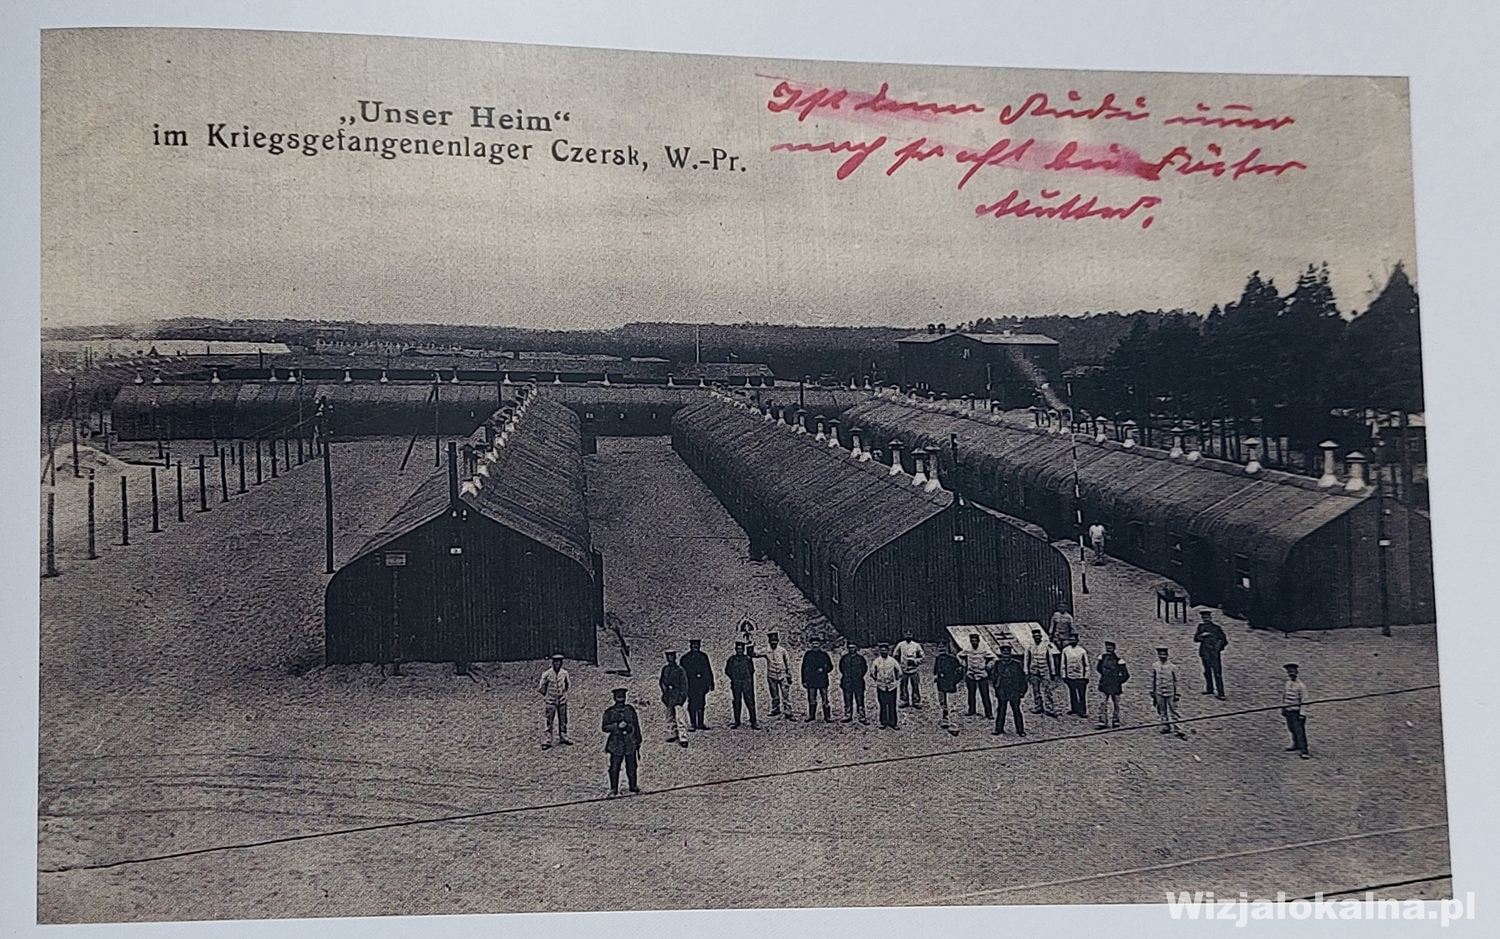 „Unser Heim“
im Kriegsgefangenenlager Czersk, W.-Pr.
Ist denn Rudi immer
noch so oft bei
Mutter.
Wizjalokalna.pl